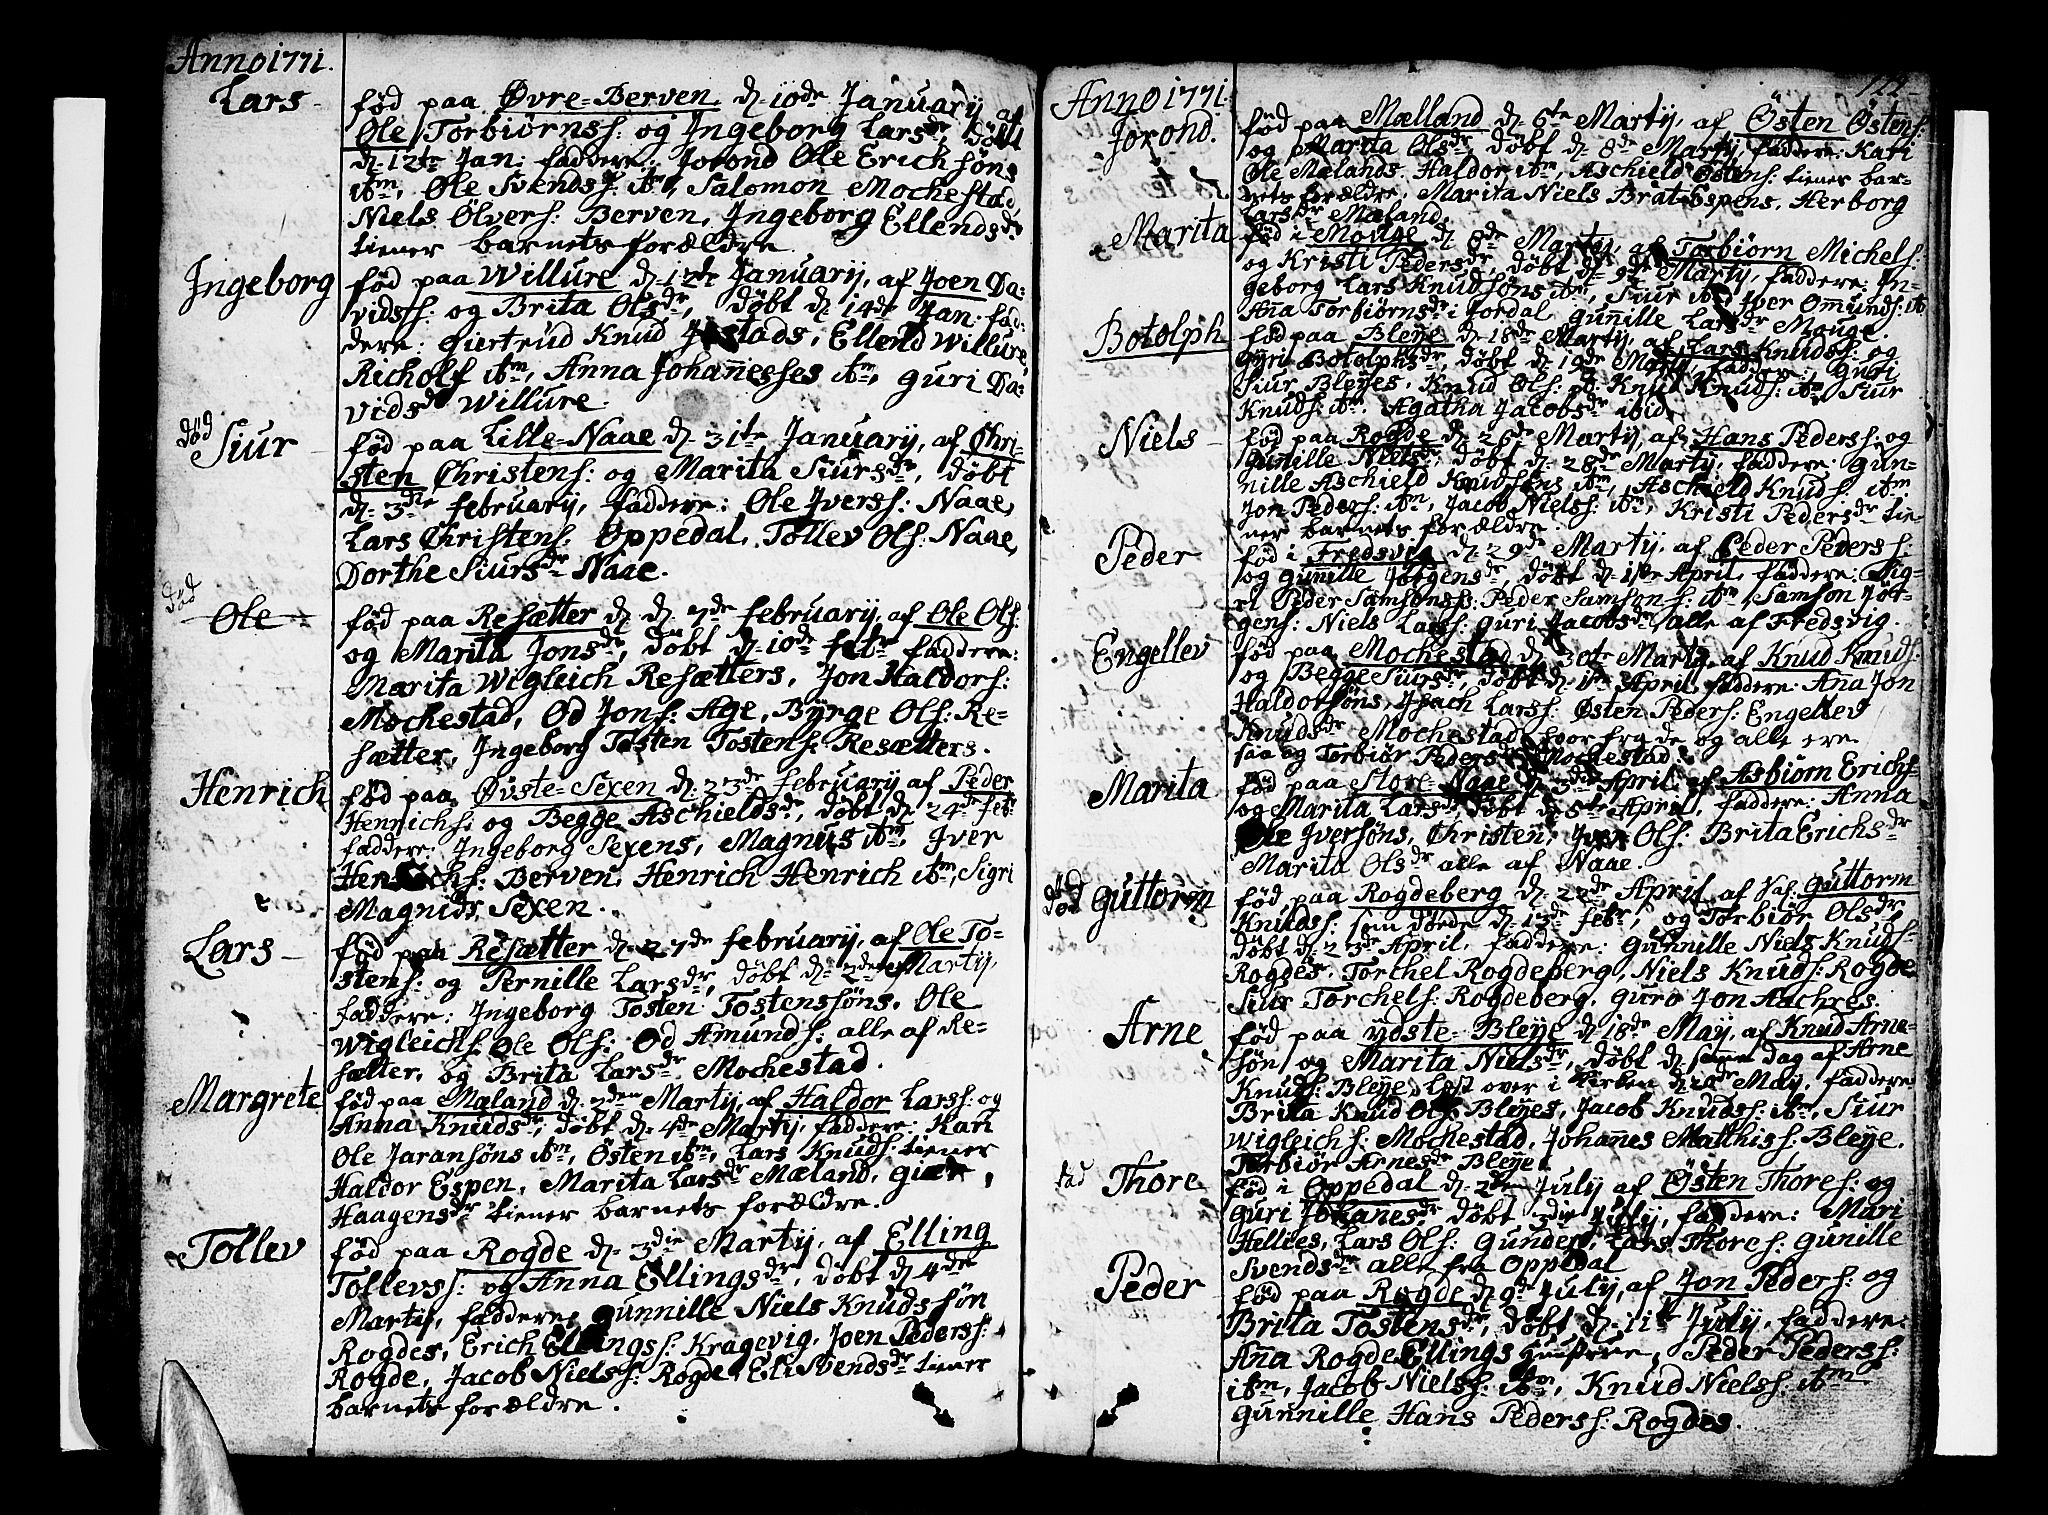 Anno 1771.
Lars
fød paa Øvre-Berven, d. 10de January af
Ole Torbiørns: og Ingeborg Larsdr, døbt
d. 12te Jan: faddere: Jorond Ole Erichsøns
ibm, Ole Svends: ibm, Salomon Mochestad,
Niels Ølvers: Berven, Ingeborg Ellendsdr
tiener barnets forældre.
Ingeborg
fød paa Willure d. 12te January, af Joen Da-
vidss: og Brita Olsdr, døbt d. 14de Jan: fad-
dere: Giertrud Knud Jastads, Ellend Willure,
Richolf ibm, Anna Johannesses ibm, Guri Da-
vidsdr Willure.
død
Siur
fød paa Lille-Naae d. 31te January, af Chri-
sten Christens: og Marita Siursdr, døbt
d. 3die February, faddere: Ole Ivers: Naae,
Lars Christens: Oppedal, Tollev Ols: Naae,
Dorthe Siursdr Naae.
død
Ole
fød paa Resætter d. d. 7de February, af Ole Ols:
og Marita Jonsdr, døbt d. 10de febr. faddere:
Marita Wigleich Resætters, Jon Haldors:
Mochestad, Od Jons: Age, Byrge Ols: Re-
sætter, Ingeborg Tosten Tostens: Resætters.
Henrich
fød paa Øvste-Sexen d. 23de February af Peder
Henrichs: og Begge Aschieldsdr, døbt d. 24de feb:
faddere: Ingeborg Sexens, Magnus ibm, Iver
Henrichs: Berven, Henrich Henrich ibm, Sigri
Magnidr Sexen.
Lars
fød paa Resætter d. 27de February, af Ole To-
stens: og Pernille Larsdr, døbt d. 2den Martij,
faddere: Ingeborg Tosten Tostenssøns, Ole
Wigleichs: Ole Ols: Od Amunds: alle af Re-
sætter, og Brita Larsdr Mochestad.
Margrete
fød paa Mæland d. 2den Martij af Haldor Larss: og
Anna Knudsdr, døbt d. 4de Martij, faddere: Kari
Ole Jaransøns ibm, Østen ibm, Lars Knuds: tiener
Haldor Espen, Marita Larsdr Mæland,
Haagensdr tiener barnets forældre.
Tollev
fød paa Rogde d. 3die Martij, af Elling
Tollevss: og Anna Ellingsdr, døbt d. 4de
Martij, faddere, Gunnille Niels Knudssøn
Rogdes, Erich Ellings: Kragevig, Joen Pederss:
Rogde, Jacob Nielss: Rogde, Eli Svendsdr tiener
barnets forældre.
122
Anno 1771.
Jorond.
fød paa Mælland d. 6te Martij, af Østen Østens:
og Marita Olsdr, døbt d. 8de Martij, faddere: Kari
Ole Mælands, Haldor ibm, Aschield Østens: tiener bar-
nets forældre, Marita Niels Brat-Espens, Herborg
Larsdr Mæland.
Marita
fød i Mouge d. 8de Martij, af Torbiørn Michels:
og Kristi Pedersdr, døbt d. 9de Martij, faddere: In-
geborg Lars Knudsøns ibm, Siur ibd Iver Omunds: ib
Anna Torbiørnsdr i Jordal Gunille Larsdr Mouge.
Botolph
fød paa Bleye d. 18de Martij, af Lars Knuds: og
Gyri Botolphsdr, døbt d. 19de Martij faddere: Guri
Siur Bleyes, Knud Ols: Knud Knuds: ibm Siur
Knuds: ibm. Agatha Jacobsdr ibid.
Niels
fød paa Rogde d. 26de Martij, af Hans Peders: og
Gunille Nielsdr, døbt d. 28de Martij, faddere: Gun-
nille Aschield Knudsens ibm, Aschield Knuds: ibm.
Jon Peders: ibm, Jacob Niels: ibm, Kristi Pedersdr tie-
ner barnets forældre.
Peder
fød i Fredsvig d. 29de Martij, af Peder Peders:
og Gunille Jørgensdr, døbt d. 1ste April, faddere: Sig-
ri Peder Samsøns: Peder Samsons: ibm, Samson Jør-
gens: Niels Lars: Guri Jacobsdr, alle af Fredsvig.
Engellev
fød paa Mochestad d. 30te Martij, af Knud Knuds:
og Begge Siursdr, døbt d. 1ste April, faddere: Anna Jon
Haldorsøns, Lars: Østen Peders: Engellev
Knudsdr Mochestad, og alle ere
og Torbiør Pedersdr Mochestad.
Marita
fød paa Store-Naae d. 3die April, af Asbiørn Erichs:
og Marita Larsdr, døbt d. 5te April, faddere: Anna
Ole Iversøns, Christen, Iver Ols: Brita Erichsdr
Marita Olsdr alle af Naae.
død
Guttorm
fød paa Rogdeberg d. 22de April af Guttorm
Knuds: som døde d. 13de febr, og Torbiør Olsdr
døbt d. 23de April, faddere: Gunnille Niels Knuds:
Rogdes, Torchel Rogdeberg, Niels Knuds: Rogde
Siur Torchels: Rogdeberg, Guro Jon Aachres.
Arne
fød paa ydste-Bleye d. 18de May, af Knud Arne-
søn og Marita Nielsdr, døbt d. samme dag af Arne
Knuds: Bleye, læst over i kirken d. 19de May, faddere:
Brita Knud Ols: Bleyes, Jacob Knuds: ibm, Siur
Wigleichs: Mochestad, Johannes Matthiss: Bleye,
Torbiør Arnesdr Bleye.
død
Thore
fød i Oppedal d. 2den July af Østen Thores: og
Guri Johanesdr døbt 3die July, faddere: Mari
Hellies, Lars Ols: Gunder, Lars Thores: Gunille
Svendsdr alle fra Oppedal
Peder
fød paa Rogde d. 9de July, af Jon Peders: og
Brita Tostensdr, døbt d. 11te July, faddere:
Anna Rogde Ellings Hustrue, Peder Peders:
ibm, Jacob Niels: ibm, Knud Niels: ibm
Gunnille Hans Pederss: Rogdes.